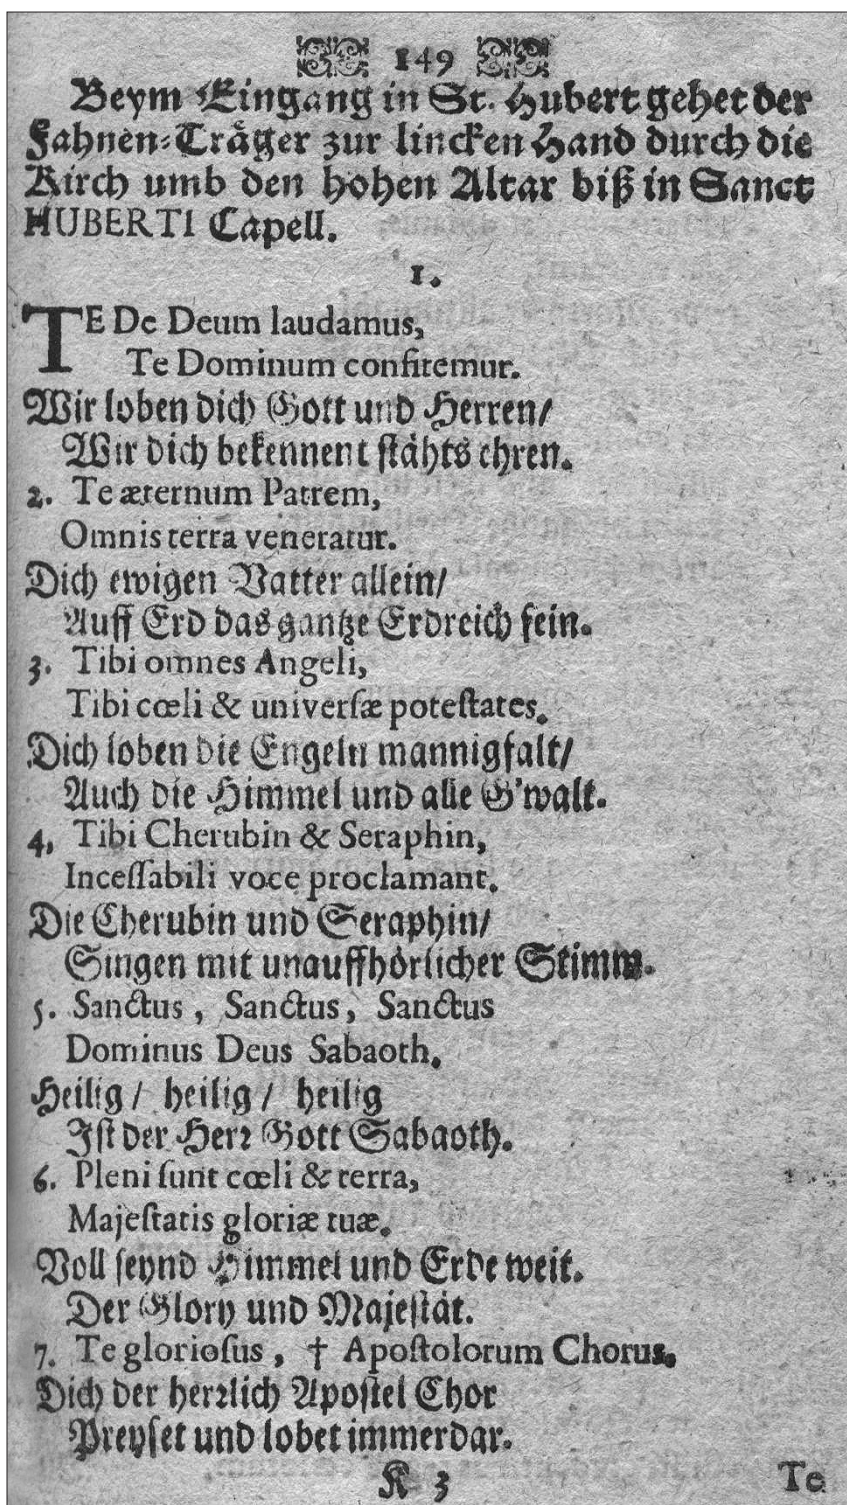 149
Beym Eingang in St. Hubert gehet der
Fahnen-Träger zur lincken Hand durch die
Kirch umb den hohen Altar biß in Sanct
HUBERTI Capell.
1.
TE De Deum laudamus,
Te Dominum confitemur.
Wir loben dich Gott und Herren/
Wir dich bekennent stähts ehren.
2. Te æternum Patrem,
Omnis terra veneratur.
Dich ewigen Vatter allein/
Auff Erd das gantze Erdreich fein.
3. Tibi omnes Angeli,
Tibi cœli & universæ potestates.
Dich loben die Engeln mannigfalt/
Auch die Himmel und alle G'walt.
4, Tibi Cherubin & Seraphin,
Incessabili voce proclamant.
Die Cherubin und Seraphin/
Singen mit unauffhörlicher Stimm.
5. Sanctus, Sanctus, Sanctus
Dominus Deus Sabaoth.
Heilig/ heilig/ heilig
Ist der Herr Gott Sabaoth.
6. Pleni sunt cœli & terra,
Majestatis gloriæ tuæ.
Voll seynd Himmel und Erde weit.
Der Glory und Majestät.
7. Te gloriosus, † Apostolorum Chorus.
Dich der herrlich Apostel Chor
Preyset und lobet immerdar.
K 3 Te